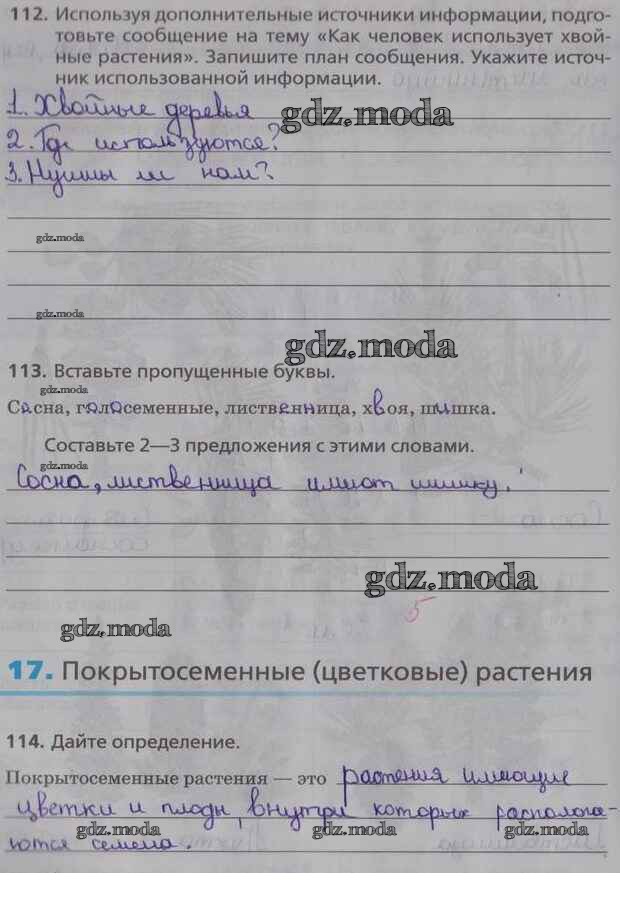 112. Используя дополнительные источники информации, подго-
товьте сообщение на тему «Как человек использует хвой-
ные растения». Запишите план сообщения. Укажите источ-
ник использованной информации.
1. Хвойные деревья
gdz.moda
2. Где используются?
3. Нужны ли нам?
gdz.moda
gdz.moda
gdz.moda
113. Вставьте пропущенные буквы.
gdz.moda
Сосна, голосеменные, лиственница, хвоя, шишка.
Составьте 2—3 предложения с этими словами.
gdz.moda
Сосна, лиственница имеют шишку.
gdz.moda
5
gdz.moda
17. Покрытосеменные (цветковые) растения
114. Дайте определение.
Покрытосеменные растения — это растения имеющие
цветки и плоды, внутри которых располога-
gdz.moda gdz.moda gdz.moda
ются семена.